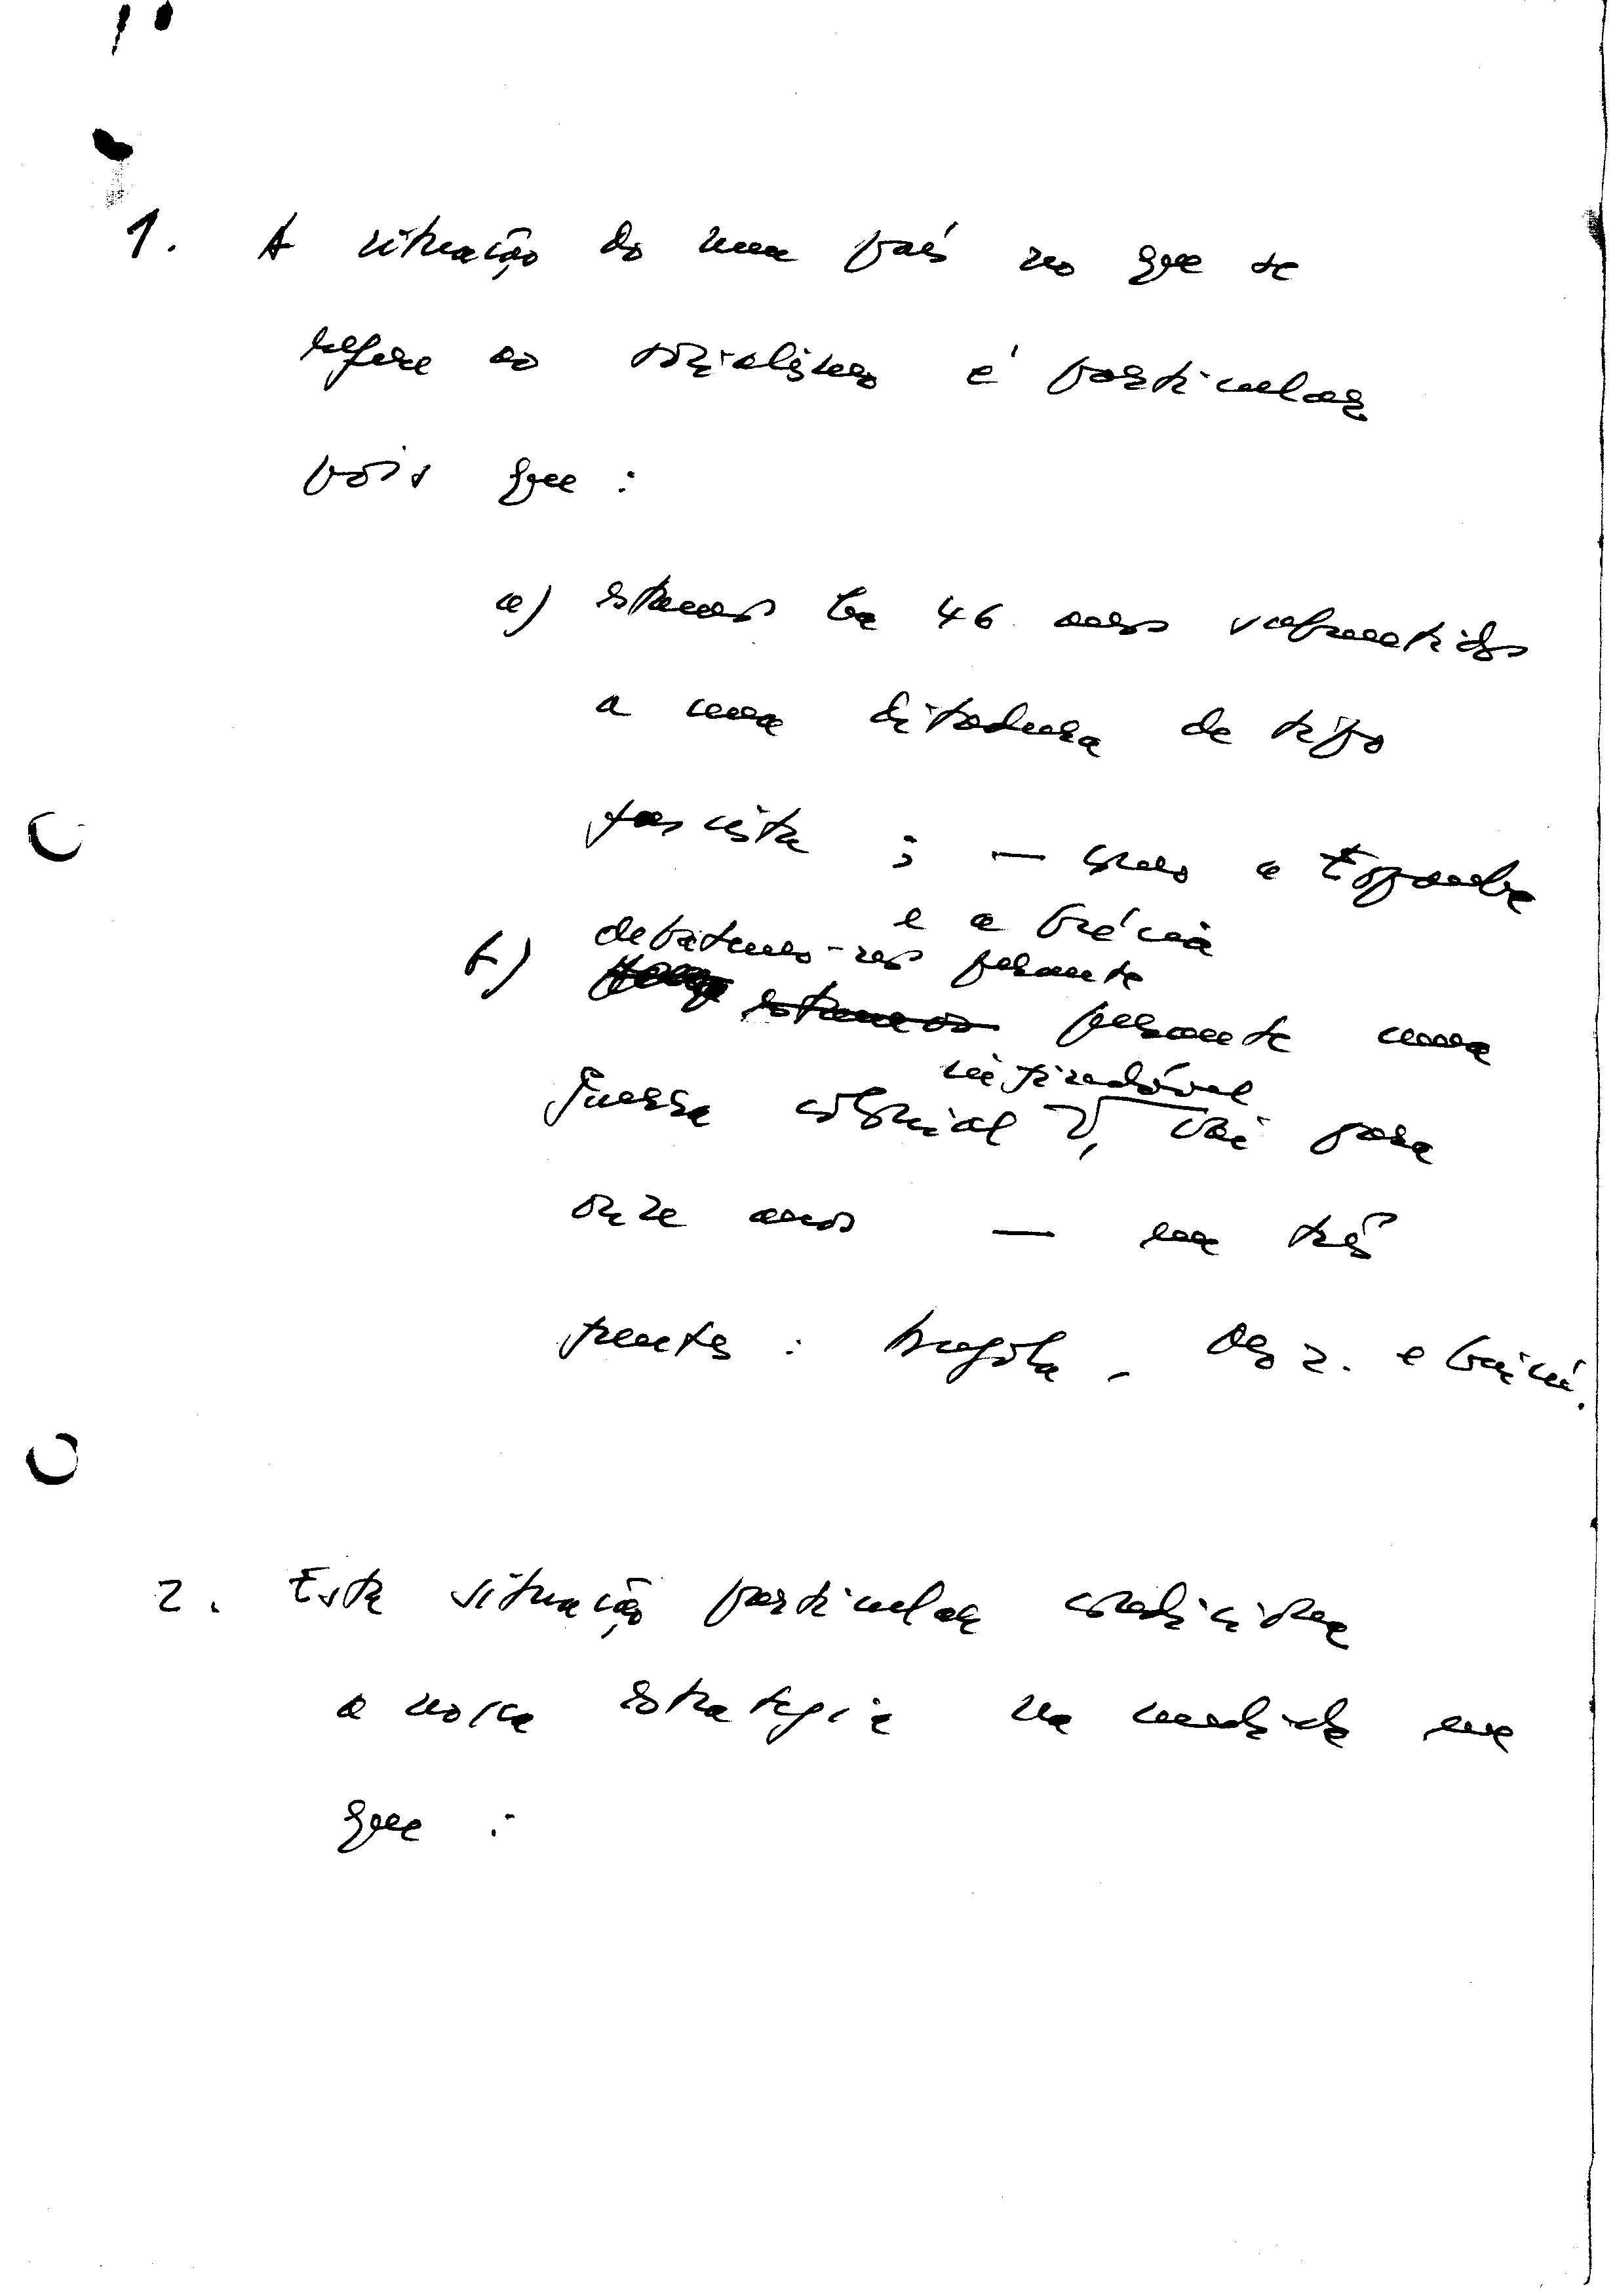 1. A situação do meu país no que se
refere ao socialismo é particular
pois que :
a) estamos há 46 anos submetidos
a uma ditadura de tipo
fascista ; — como a Espanha
e a Grécia
b) debatemo-nos perante
estamos perante uma
infindável
guerra colonial, vai para
onze anos — em três
frentes : Angola, Moç. e Guiné.
2. Esta situação particular condiciona
a nossa estratégia na medida em
que :